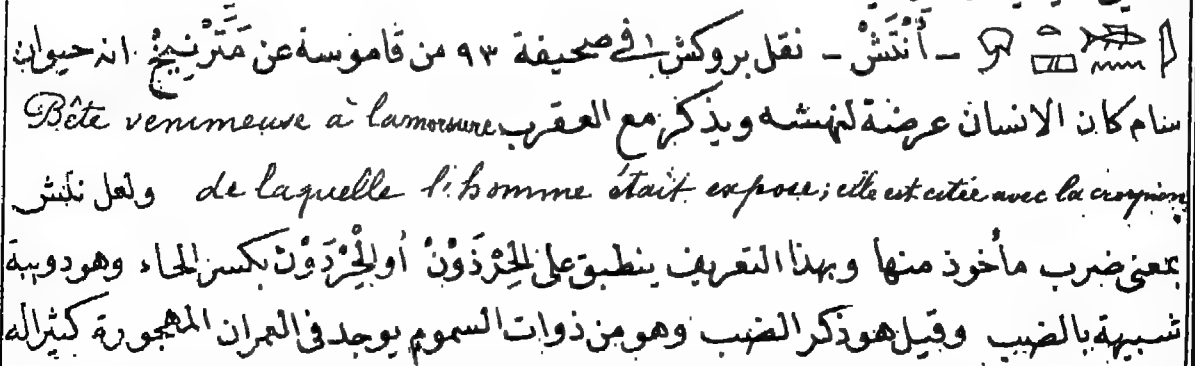 - أَنْتَشْ - نقل بروكش في صحيفة ٩٣ من قاموسة عن مَتَّرْنِيخْ. انه حيوان
سام كان الانسان عرضة لنهشه ويذكر مع العقرب Bête venimeuse à la morsure
de laquelle l'homme était expose; elle est citée avec la scorpion ولعل نتش
بمعنى ضرب مأخوذ منها وبهذا التعريف ينطبق على الحِرْذَوْنْ أو الْحِرْدَوْنْ بكسر الحاء وهو دويبة
شبيهة بالضب وقيل هو ذكر الضب وهو من ذوات السموم يوجد في العمران المهجورة كثيرا له